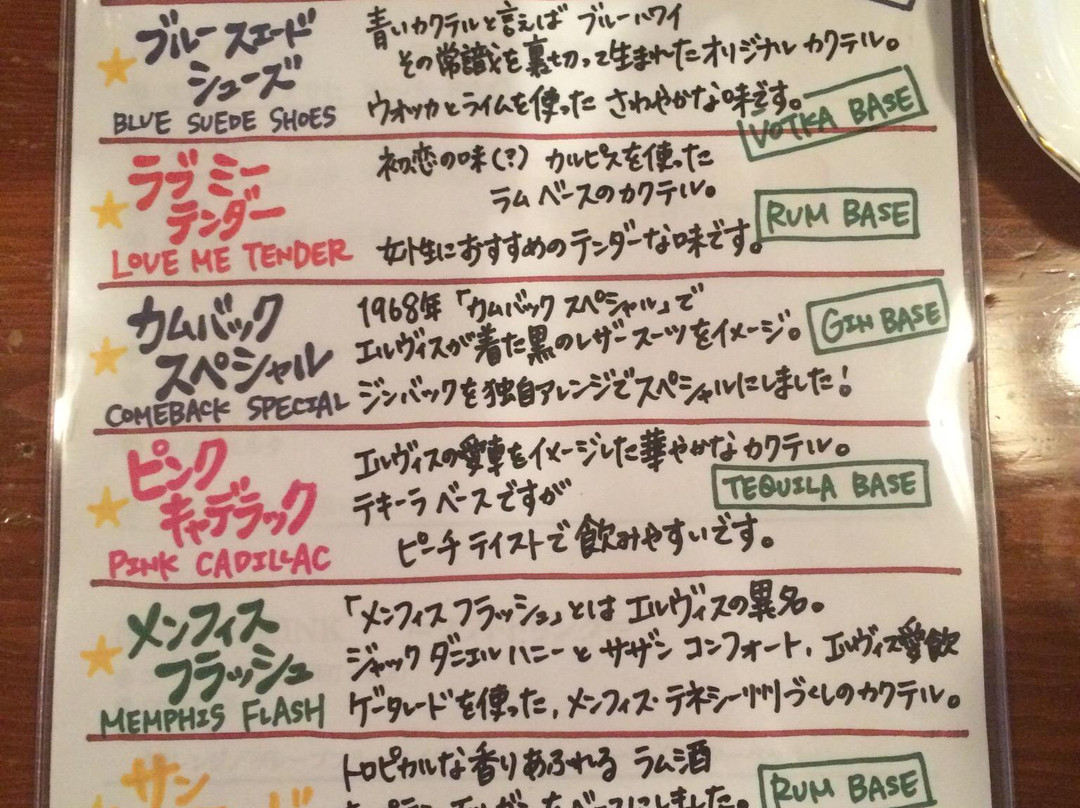 ブルー スエード
シューズ
BLUE SUEDE SHOES
青いカクテルと言えば ブルーハワイ
その常識を裏切って生まれたオリジナル カクテル。
ウオッカとライムを使った さわやかな味です。
VOTKA BASE
ラブ ミー
テンダー
LOVE ME TENDER
初恋の味(?) カルピスを使った
ラム ベースのカクテル。
女性におすすめのテンダーな味です。
RUM BASE
カムバック
スペシャル
COMEBACK SPECIAL
1968年「カムバック スペシャル」で
エルヴィスが着た黒のレザースーツをイメージ。
ジンバックを独自アレンジでスペシャルにしました!
GIN BASE
ピンク
キャデラック
PINK CADILLAC
エルヴィスの愛車をイメージした華やかなカクテル。
テキーラ ベースですが
ピーチ テイストで 飲みやすいです。
TEQUILA BASE
メンフィス
フラッシュ
MEMPHIS FLASH
「メンフィス フラッシュ」とは エルヴィスの異名。
ジャック ダニエル ハニーと サザン コンフォート、エルヴィス愛飲
ゲータレードを使った、メンフィス・テネシー州づくしのカクテル。
サン
トロピカルな香りあふれる ラム酒
RUM BASE